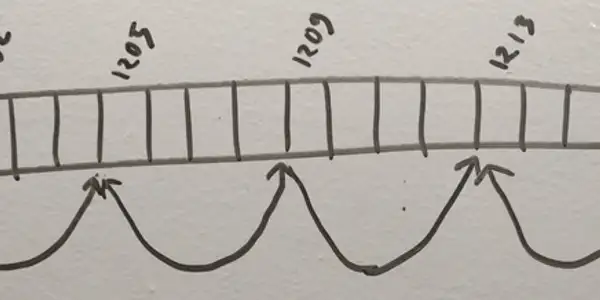 1205
1209
1213